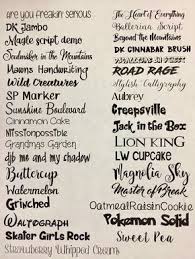 are you freakin' serious
DK Jambo
Magic script demo
Soulmaker in the Mountains
Mixons Handwriting
Wild Creatures
SP Marker
Sunshine Boulevard
Cinnamon Cake
Missionpossible
Grandmas Garden
djb me and my shadow
Buttercup
Watermelon
Grinched
Waltograph
Skranji Font
Strawberry Whipped Cream
The Heart of Everything
Ballerina Script
Beyond the Mountains
DK CINNABAR BRUSH
PARKPLATZ
ROAD RAGE
Stylish Calligraphy
Aubrey
Creepsville
Jack in the Box
LION KING
LW CUPCAKE
Magnolia Sky
Master of Break
OatmealRaisinCookie
Pokemon Solid
Sweet Pea